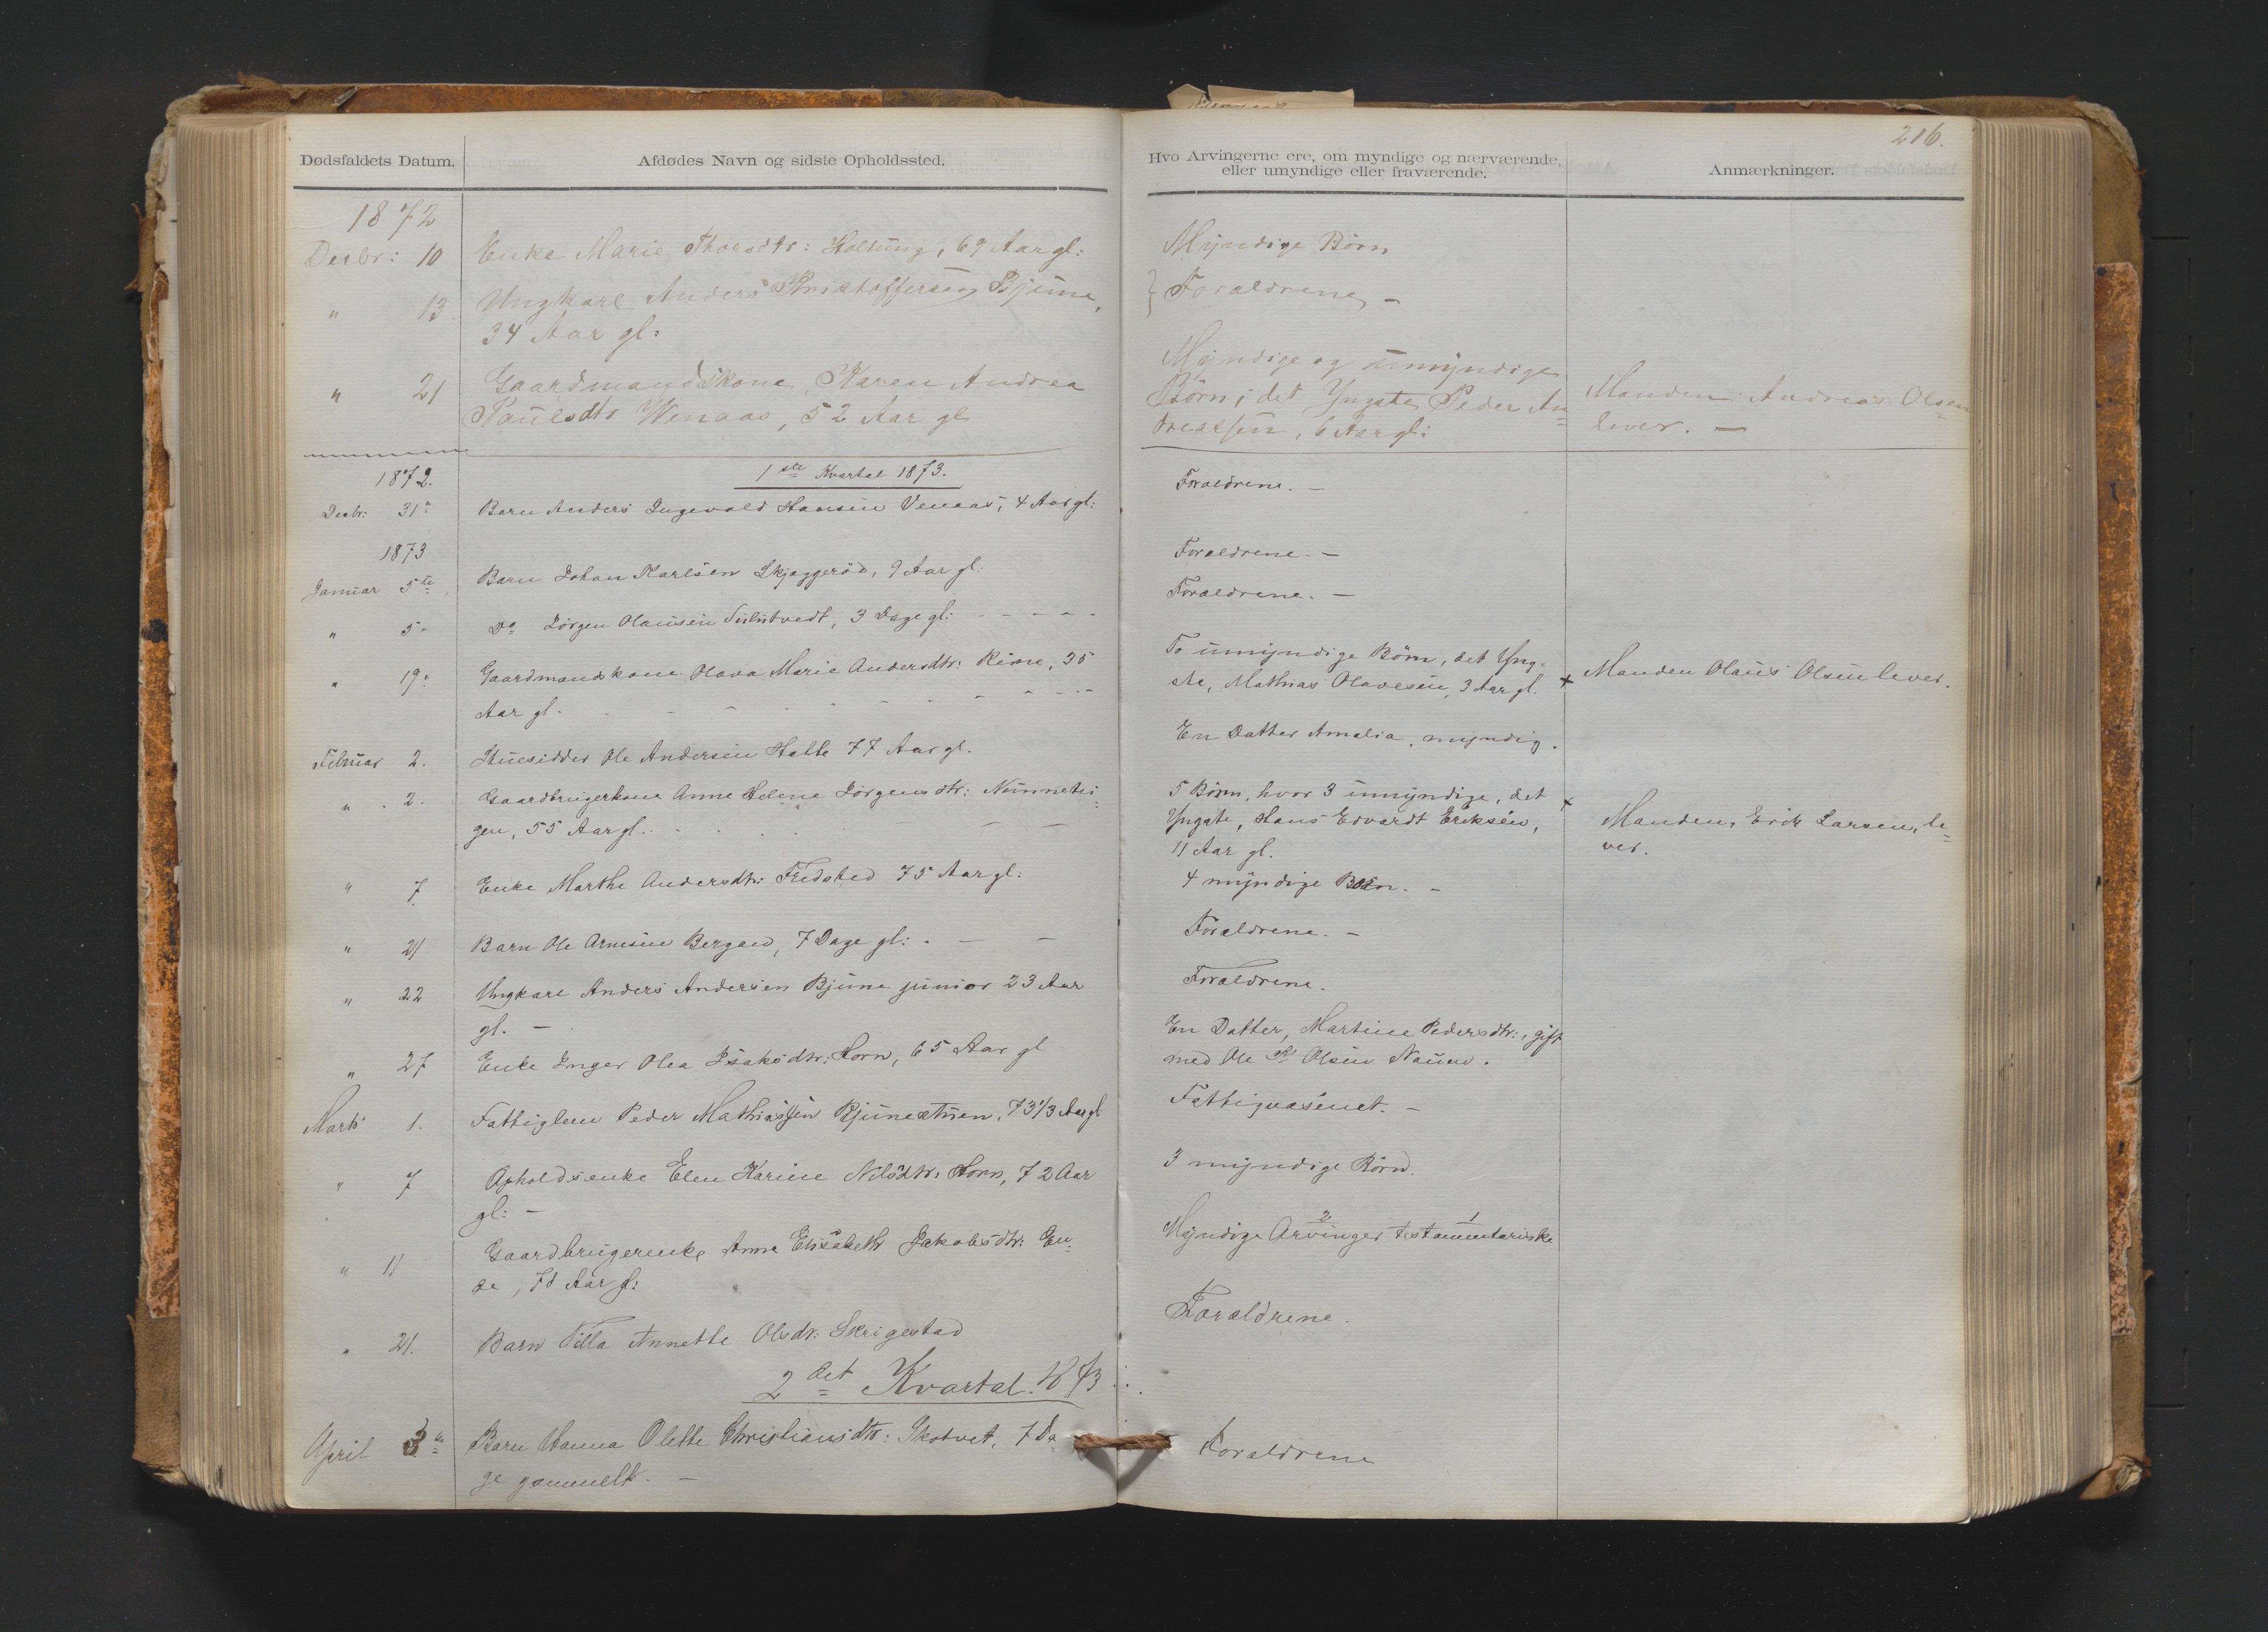 216.
Dødsfaldets Datum. Afdødes Navn og sidste Opholdssted. Hvo Arvingerne ere, om myndige og nærværende, eller umyndige eller fraværende. Anmærkninger.
1872
Decbr: 10 Enke Marie Thorsdtr: Holtung, 69 Aar gl: Myndige Børn
" 13. Ungkarl Anders Kristoffersen Bjune, } Forældrene –
34 Aar gl:
" 21 Gaardmandskone Karen Andrea
Paulsdtr Wenaas, 52 Aar gl
Myndige og umyndige
Børn; det Yngste Peder An=
dreassen, 6 Aar gl:
Manden Andreas Olsen
lever. –
1872. 1ste Kvartal 1873.
Decbr: 31" Barn Anders Ingevald Hansen Venaas, 4 Aar gl: Forældrene. –
1873
Januar 5te Barn Johan Karlsen Skjæggerød, 9 Aar gl. Forældrene. –
" 5" Do Jørgen Olausen 3 Dage gl: – – – – – Forældrene. –
" 19" Gaardmandskone Olava Marie Andersdtr: Rime, 35
Aar gl.
To umyndige Børn, det Yng=
ste, Mathias Olavesen, 3 Aar gl. +
Manden Olaus Olsen lever.
Februar 2. Huusidder Ole Andersen Holte 77 Aar gl. En Datter Amalia, myndig.
" 2. Gaardbrugerkone Anne Helene Jørgensdtr: Nunnetei=
gen, 55 Aar gl.
5 Børn, hvor 3 umyndige, det +
Yngste, Hans Edvardt Eriksen,
11 Aar gl.
Manden, Erik Larsen, le=
ver.
" 7. Enke Marthe Andersdtr: Fredsted 75 Aar gl. 4 myndige Børn. –
" 21 Barn Ole Arnesen Bergan, 7 Dage gl: . – – Forældrene. –
" 22 Ungkarl Anders Andersen Bjune junior 23 Aar
gl. –
Forældrene.
" 27 Enke Inger Olea Isaksdtr: Horn, 65 Aar gl
En Datter, Martine Pedersdtr:, gift
med Ole Olsen Nauen.
Marts 1. Fattiglem Peder Mathiassen Bjuneætuen, 73 1/3 Aar gl Fattigvæsenet. –
" 7 Opholdsenke Elen Karine Nilsdtr: Horn, 72 Aar
gl: –
3 myndige Børn.
" 11 Gaardbrugerenke Anne Elisabeth Jakobsdtr: En=
ge, 78 Aar gl:
Myndige Arvinger testamentariske
2 1
" 21. Barn Tilla Annette Olsdr: Skrigestad Forældrene.
2det Kvartal. 1873
April 3de Barn Hanna Olette Christiansdtr: Skotvet, 7 Da=
ge gammelt. –
Forældrene